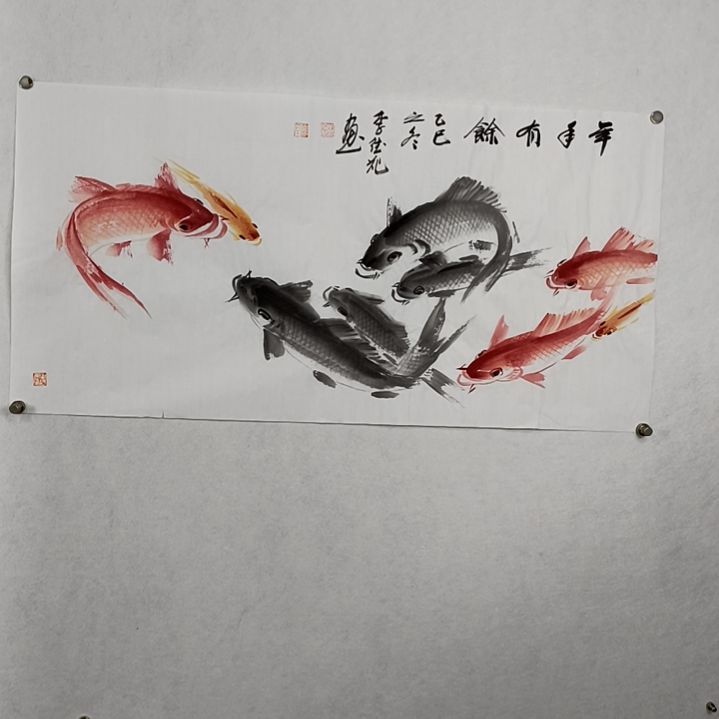 年年有餘
乙巳
之冬
李
画